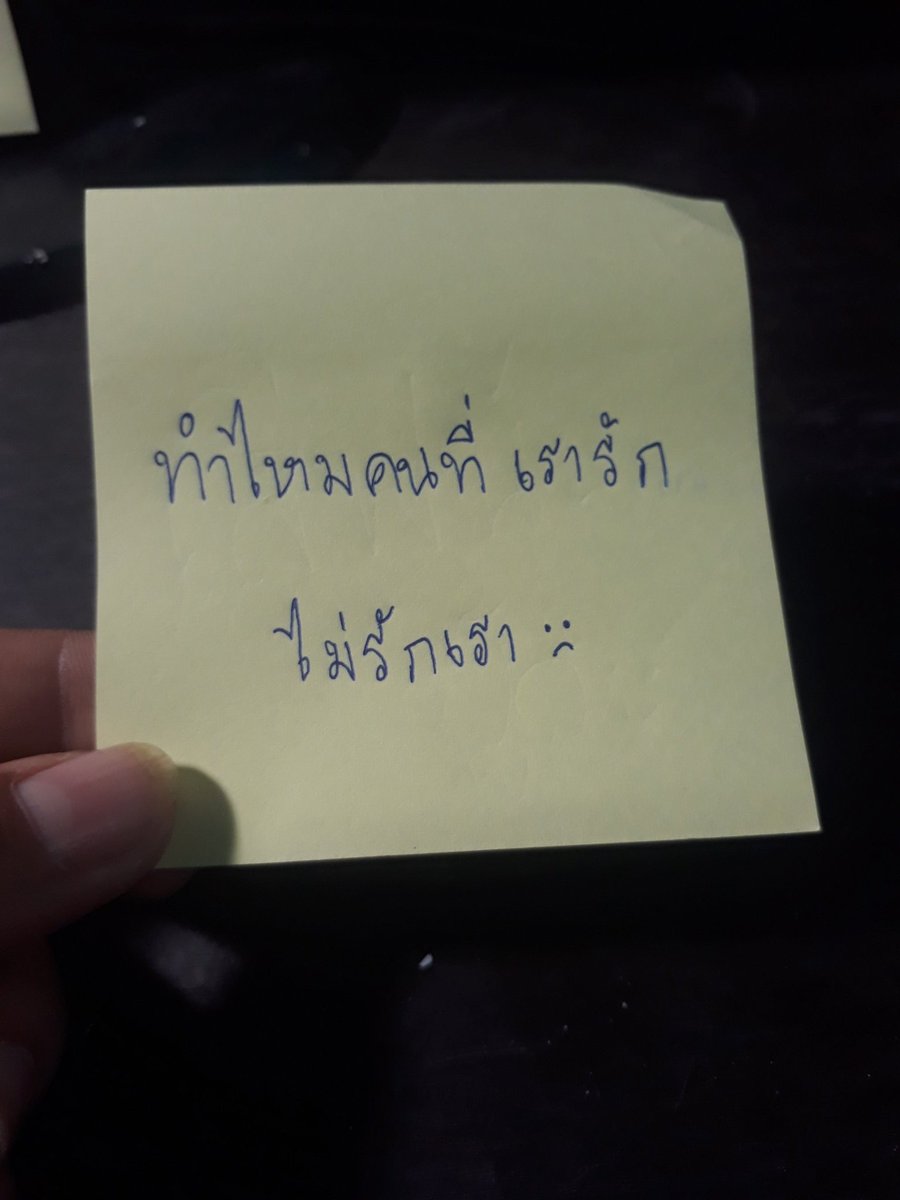 ทำไหมคนที่ เรารัก
ไม่รักเรา :(